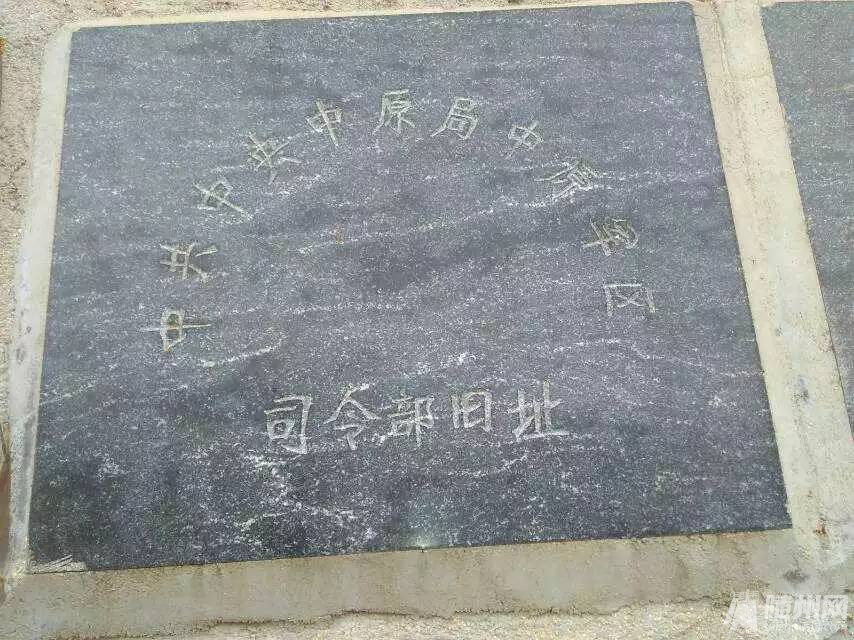 中共中央中原局中原军区
司令部旧址
随州网